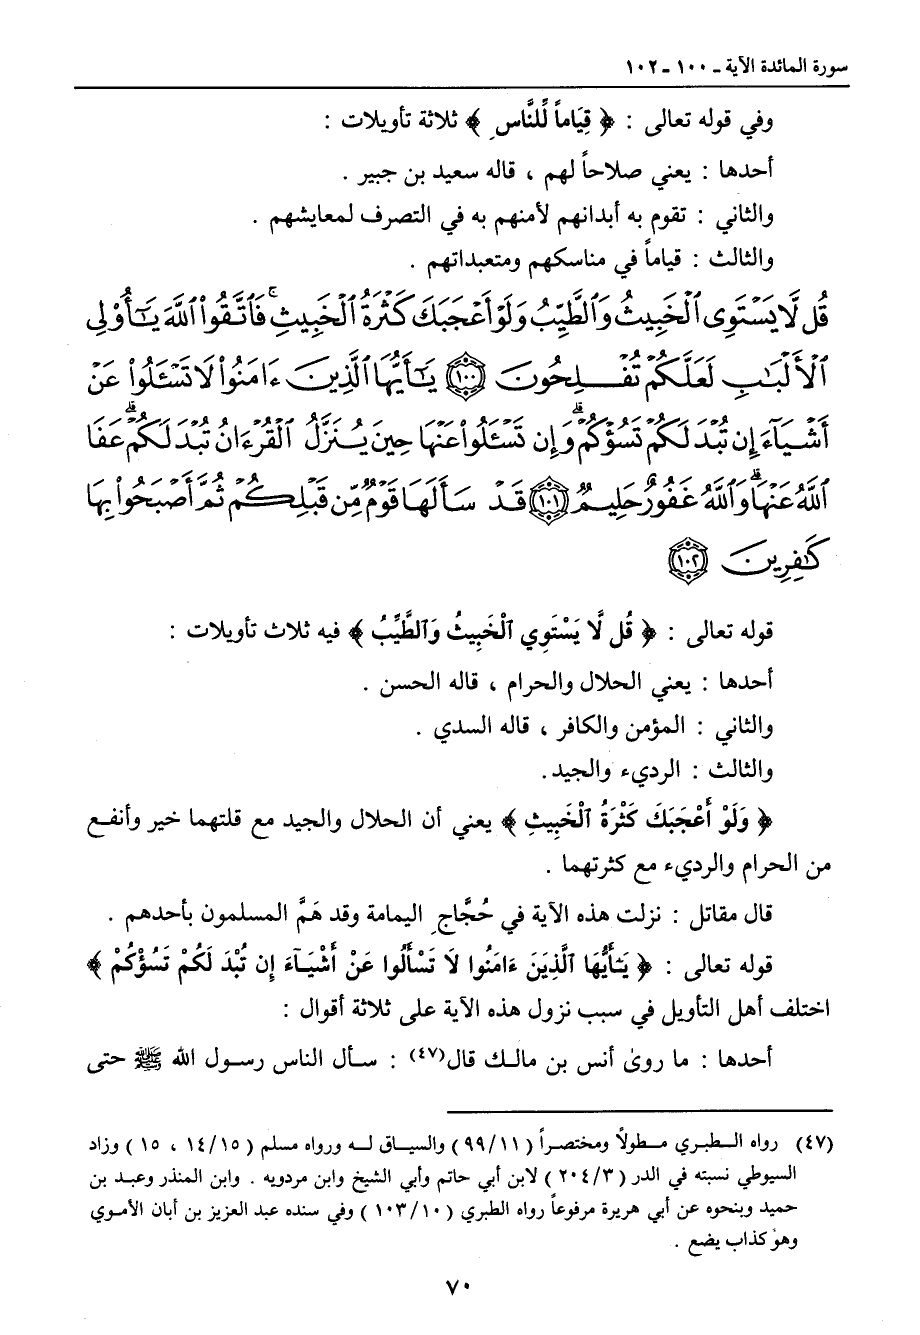 سورة المائدة الآية ـ ١٠٠ ـ ١٠٢
وفي قوله تعالى : ﴿ قِيَاماً لِّلنَّاسِ ﴾ ثلاثة تأويلات :
أحدها : يعني صلاحاً لهم ، قاله سعيد بن جبير .
والثاني : تقوم به أبدانهم لأمنهم به في التصرف لمعايشهم .
والثالث : قياماً في مناسكهم ومتعبداتهم .
قُل لَّا يَسْتَوِى ٱلْخَبِيثُ وَٱلطَّيِّبُ وَلَوْ أَعْجَبَكَ كَثْرَةُ ٱلْخَبِيثِ ۚ فَٱتَّقُوا۟ ٱللَّهَ يَـٰٓأُو۟لِى
ٱلْأَلْبَـٰبِ لَعَلَّكُمْ تُفْلِحُونَ ﴿١٠٠﴾ يَـٰٓأَيُّهَا ٱلَّذِينَ ءَامَنُوا۟ لَا تَسْـَٔلُوا۟ عَنْ
أَشْيَآءَ إِن تُبْدَ لَكُمْ تَسُؤْكُمْ ۖ وَإِن تَسْـَٔلُوا۟ عَنْهَا حِينَ يُنَزَّلُ ٱلْقُرْءَانُ تُبْدَ لَكُمْ ۖ عَفَا
ٱللَّهُ عَنْهَا ۗ وَٱللَّهُ غَفُورٌ حَلِيمٌ ﴿١٠١﴾ قَدْ سَأَلَهَا قَوْمٌ مِّن قَبْلِكُمْ ثُمَّ أَصْبَحُوا۟ بِهَا
كَـٰفِرِينَ ﴿١٠٢﴾
قوله تعالى : ﴿ قُل لَّا يَسْتَوِي ٱلْخَبِيثُ وَٱلطَّيِّبُ ﴾ فيه ثلاث تأويلات :
أحدها : يعني الحلال والحرام ، قاله الحسن .
والثاني : المؤمن والكافر ، قاله السدي .
والثالث : الرديء والجيد .
﴿ وَلَوْ أَعْجَبَكَ كَثْرَةُ ٱلْخَبِيثِ ﴾ يعني أن الحلال والجيد مع قلتهما خير وأنفع
من الحرام والرديء مع كثرتهما .
قال مقاتل : نزلت هذه الآية في حُجَّاجِ اليمامة وقد هَمَّ المسلمون بأحدهم .
قوله تعالى : ﴿ يَـٰٓأَيُّهَا ٱلَّذِينَ ءَامَنُوا لَا تَسْأَلُوا عَنْ أَشْيَآءَ إِن تُبْدَ لَكُمْ تَسُؤْكُمْ ﴾
اختلف أهل التأويل في سبب نزول هذه الآية على ثلاثة أقوال :
أحدها : ما روىٰ أنس بن مالك قال(٤٧) : سأل الناس رسول الله ﷺ حتى
(٤٧) رواه الطبري مطولاً ومختصراً ( ٩٩/١١ ) والسياق له ورواه مسلم ( ١٤/١٥ ، ١٥ ) وزاد
السيوطي نسبته في الدر ( ٢٠٤/٣ ) لابن أبي حاتم وأبي الشيخ وابن مردويه . وابن المنذر وعبد بن
حميد وبنحوه عن أبي هريرة مرفوعاً رواه الطبري ( ١٠٣/١٠ ) وفي سنده عبد العزيز بن أبان الأموي
وهو كذاب يضع .
٧٠